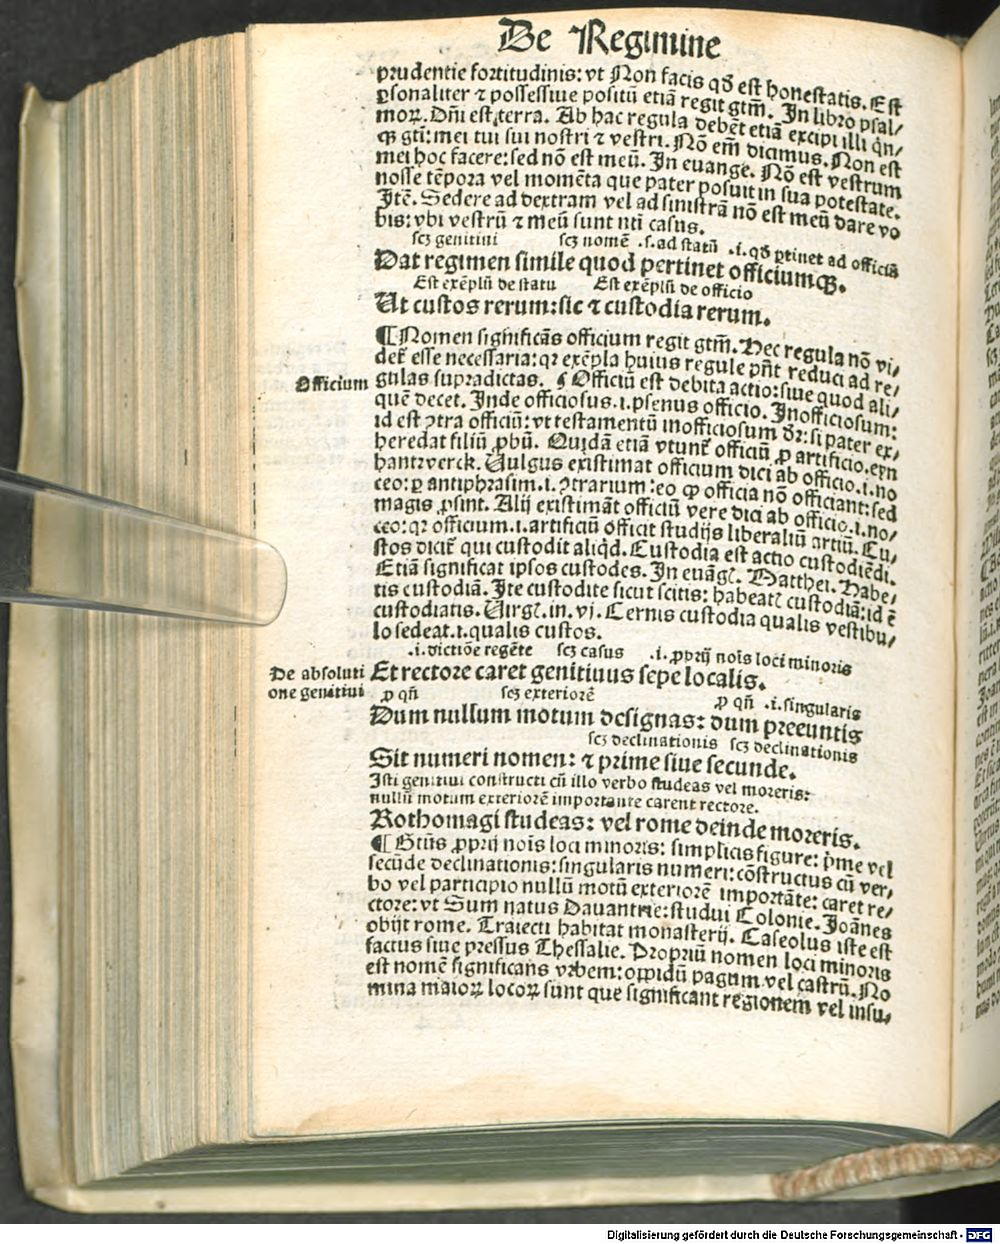 De Regimine
prudentie fortitudinis: vt Non facis qđ est honestatis. Est
ꝑsonaliter ⁊ possessiue positū etiā regit gtm̄. In libro psal/
moꝝ. Dn̄i est terra. Ab hac regula debēt etiā excipi illi qn̄/
qꝫ gtī: mei tui sui nostri ⁊ vestri. Nō em̄ dicimus. Non est
mei hoc facere: sed nō est meū. In euange. Nō est vestrum
nosse tēpora vel momēta que pater posuit in sua potestate.
Jtē. Sedere ad dextram vel ad sinistrā nō est meū dare vo
bis: vbi vestrū ⁊ meū sunt nti casus.
scꝫ genitiui scꝫ nomē .s. ad statū .i. qđ ꝑtinet ad officiā
Dat regimen simile quod pertinet officiumqꝫ.
Est exēplū de statu Est exēplū de officio
Ut custos rerum: sic ⁊ custodia rerum.
¶ Nomen significās officium regit gtm̄. Hec regula nō vi/
det̄ esse necessaria: qꝛ exēpla huius regule pn̄t reduci ad re/
Officium
gulas supradictas. ¶ Officiū est debita actio: siue quod ali/
quē decet. Inde officiosus .i. plenus officio. Inofficiosum:
id est ↄtra officiū: vt testamentū inofficiosum dꝛ: si pater ex/
heredat filiū ꝓbū. Quidā etiā vtunt̄ officiū ꝓ artificio. eyn
hantzverck. Uulgus existimat officium dici ab officio .i. no
ceo: ꝑ antiphrasim .i. ↄtrarium: eo ꝙ officia nō officiant: sed
magis ꝓsint. Alij existimāt officiū vere dici ab officio .i. no/
ceo: qꝛ officium .i. artificiū officit studijs liberaliū artiū. Cu/
stos dicit̄ qui custodit aliqd. Custodia est actio custodiēdi.
Etiā significat ipsos custodes. In euāgꝉ. Matthei. Habe/
tis custodiā. Ite custodite sicut scitis: habeatꝭ custodiā: id ē
custodiatis. Uirgꝉ. in. vj. Cernis custodia qualis vestibu/
lo sedeat .i. qualis custos.
.i. dictiōe regēte scꝫ casus .i. ꝓprij nois loci minoris
De absoluti
one genitiui
Et rectore caret genitiuus sepe localis.
ꝓ qn̄ scꝫ exteriorē ꝓ qn̄ .i. singularis
Dum nullum motum designas: dum preeuntis
scꝫ declinationis scꝫ declinationis
Sit numeri nomen: ⁊ prime siue secunde.
Isti genitiui constructi cū illo verbo studeas vel moreris:
nullū motum exteriorē importante carent rectore.
Rothomagi studeas: vel rome deinde moreris.
¶ Gtūs ꝓprij nois loci minoris: simplicis figure: pme vel
secūde declinationis: singularis numeri: cōstructus cū ver/
bo vel participio nullū motū exteriorē importāte: caret re/
ctore: vt Sum natus Dauantrie: studui Colonie. Joānes
obijt rome. Traiecti habitat monasterij. Caseolus iste est
factus siue pressus Thessalie. Propriū nomen loci minoris
est nomē significans vrbem: oppidū pagum vel castrū. No
mina maioꝝ locoꝝ sunt que significant regionem vel insu/
Digitalisierung gefördert durch die Deutsche Forschungsgemeinschaft - DFG